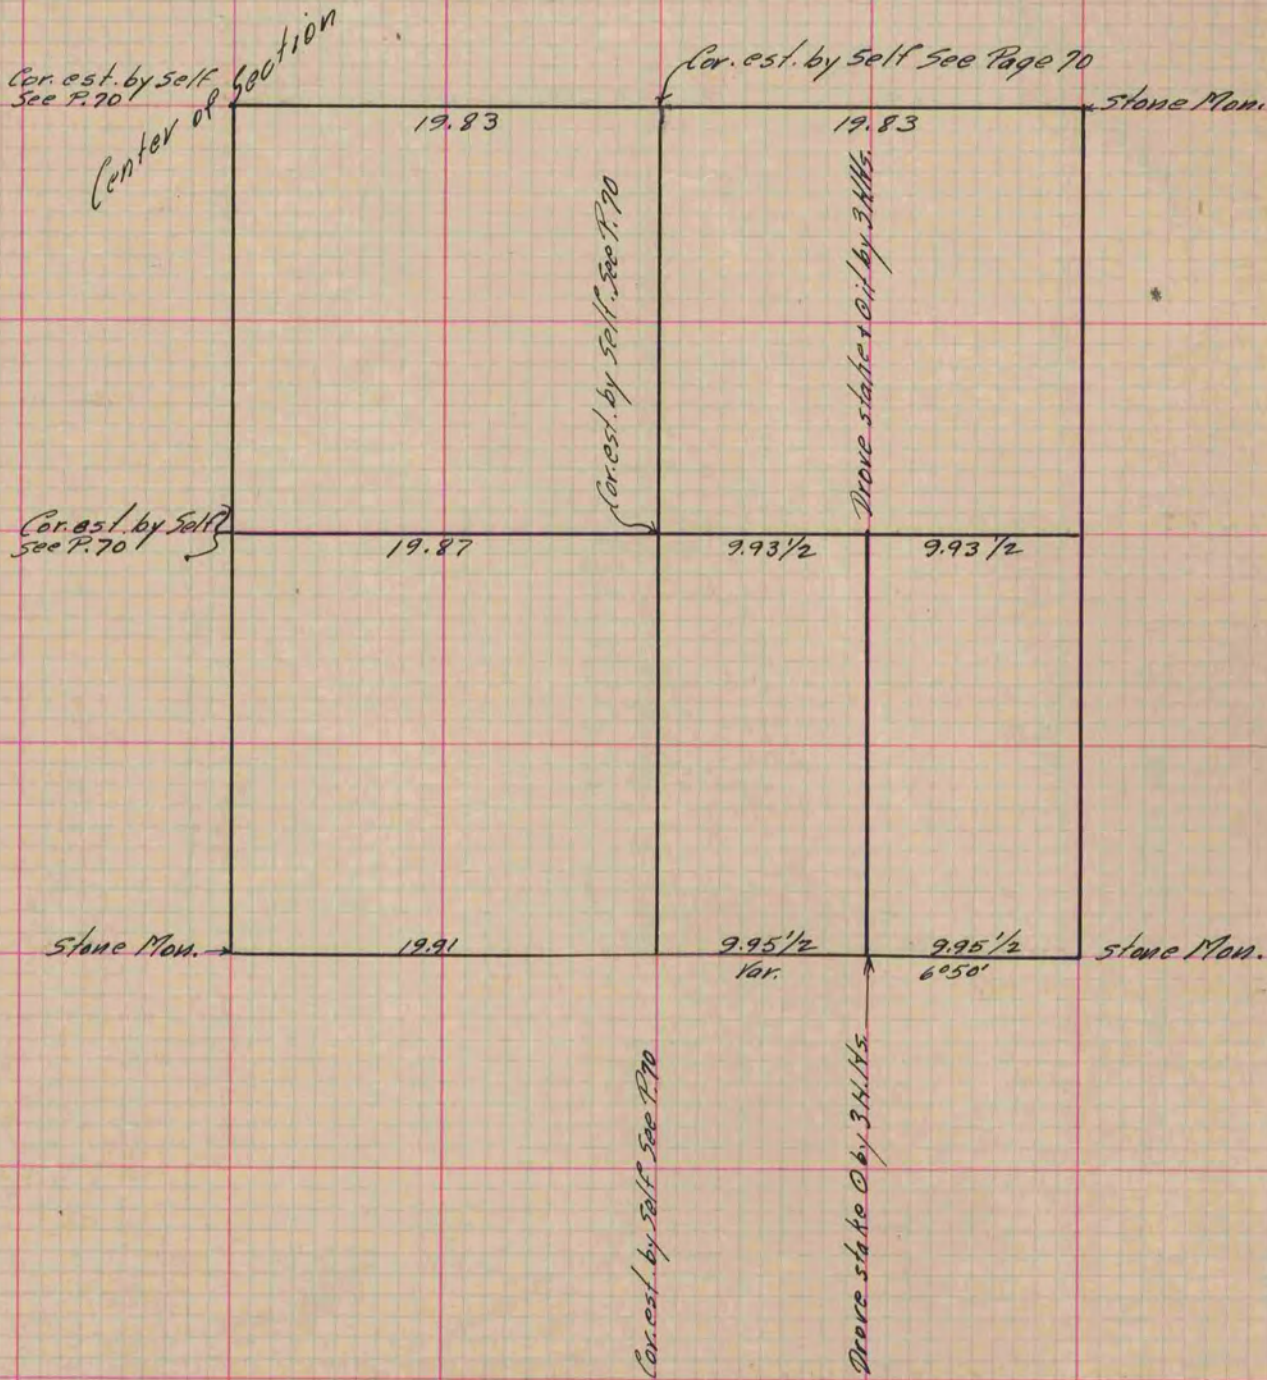 Center of Section
Cor. est. by Self
See P.70
Cor. est. by Self See Page 70
Stone Mon.
19.83
19.83
Cor. est. by Self. See P.70
Drove stake
by 3 H.Hs.
Cor. est. by Self
See P.70
19.87
9.93 1/2
9.93 1/2
Stone Mon.
19.91
9.95 1/2
9.95 1/2
Stone Mon.
Var.
6°50'
Cor. est. by Self See P.70
Drove stake O by 3 H.Hs.